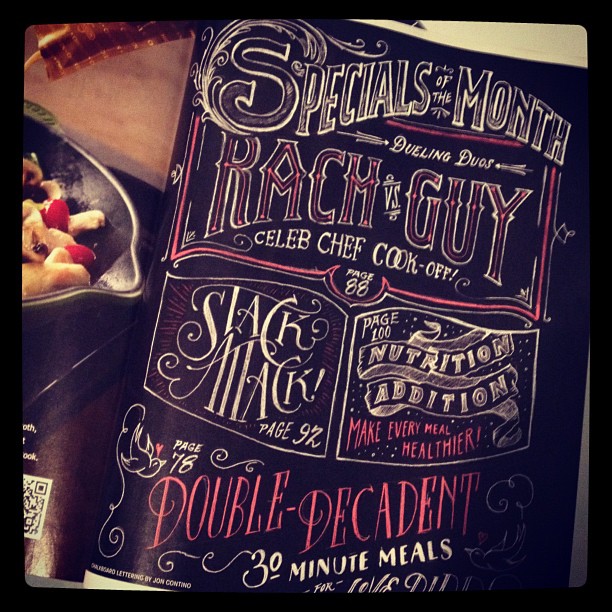 SPECIALS OF THE MONTH
DUELING DUOS
RACH VS. GUY
CELEB CHEF COOK-OFF!
PAGE
88
STACK
ATTACK!
PAGE 92
PAGE
100
NUTRITION
ADDITION
MAKE EVERY MEAL
HEALTHIER!
PAGE
78
DOUBLE-DECADENT
30 MINUTE MEALS
FOR
CHALKBOARD LETTERING BY JON CONTINO